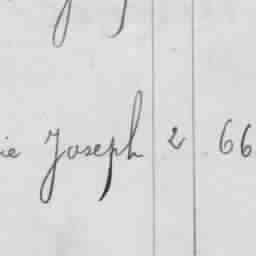 ie Joseph 2 66